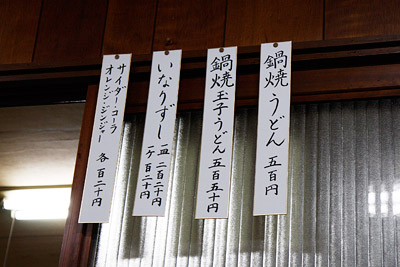 鍋焼うどん 五百円
鍋焼玉子うどん 五百五十円
いなりずし 一皿 二百二十円
一ケ 百二十円
サイダー・コーラ
オレンジ・ジンジャー 各 百二十円